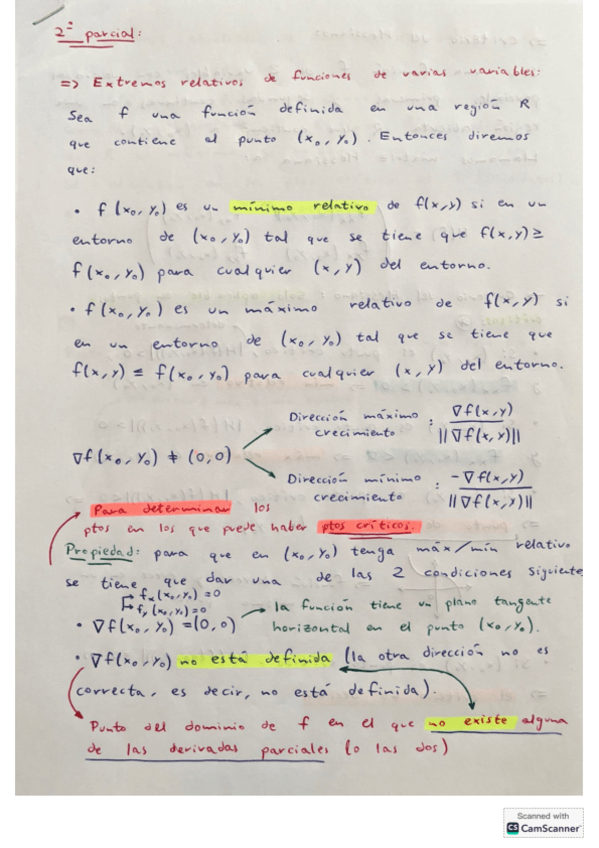 2º parcial:
=> Extremos relativos de funciones de varias variables:
Sea f una función definida en una región R
que contiene al punto (x₀, y₀). Entonces diremos
que:
• f(x₀, y₀) es un mínimo relativo de f(x,y) si en un
entorno de (x₀, y₀) tal que se tiene que f(x,y) ≥
f(x₀, y₀) para cualquier (x, y) del entorno.
• f(x₀, y₀) es un máximo relativo de f(x,y) si
en un entorno de (x₀, y₀) tal que se tiene que
f(x, y) ≤ f(x₀, y₀) para cualquier (x, y) del entorno.
∇f(x₀, y₀) ≠ (0,0)
Dirección máximo crecimiento : ∇f(x,y) / ||∇f(x,y)||
Dirección mínimo crecimiento : -∇f(x,y) / ||∇f(x,y)||
Para determinar los
ptos en los que puede haber ptos críticos.
Propiedad: para que en (x₀, y₀) tenga máx/mín relativo
se tiene que dar una de las 2 condiciones siguiente
fx(x₀, y₀) = 0
fy(x₀, y₀) = 0
• ∇f(x₀, y₀) = (0,0)
la función tiene un plano tangente
horizontal en el punto (x₀, y₀).
• ∇f(x₀, y₀) no está definida (la otra dirección no es
correcta, es decir, no está definida).
Punto del dominio de f en el que no existe alguna
de las derivadas parciales (o las dos)
Scanned with
CS CamScanner